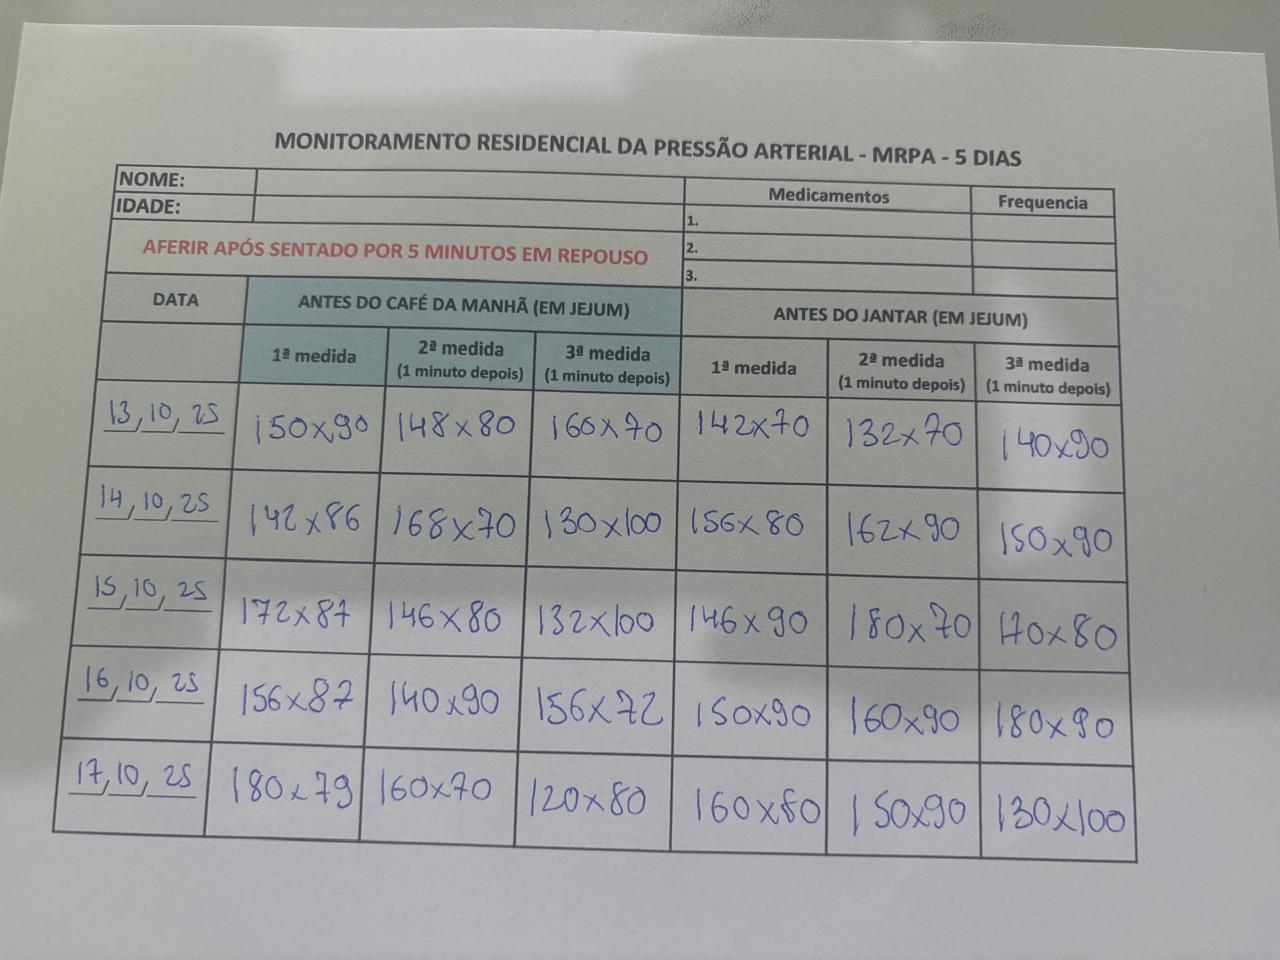 MONITORAMENTO RESIDENCIAL DA PRESSÃO ARTERIAL - MRPA - 5 DIAS
NOME: Medicamentos Frequencia
IDADE: 1.
AFERIR APÓS SENTADO POR 5 MINUTOS EM REPOUSO 2.
3.
DATA ANTES DO CAFÉ DA MANHÃ (EM JEJUM) ANTES DO JANTAR (EM JEJUM)
1ª medida 2ª medida (1 minuto depois) 3ª medida (1 minuto depois) 1ª medida 2ª medida (1 minuto depois) 3ª medida (1 minuto depois)
13,10,25 150x90 148x80 160x70 142x70 132x70 140x90
14,10,25 142x86 168x70 130x100 156x80 162x90 150x90
15,10,25 172x87 146x80 132x100 146x90 180x70 170x80
16,10,25 156x87 140x90 156x72 150x90 160x90 180x90
17,10,25 180x79 160x70 120x80 160x80 150x90 130x100